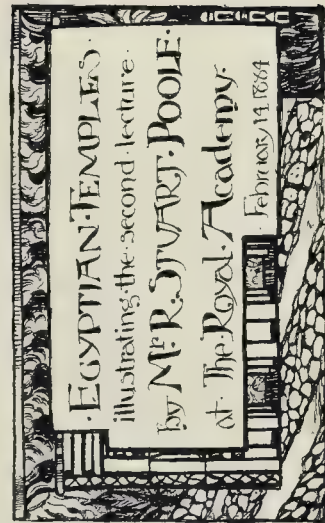 · EGYPTIAN · TEMPLES ·
illustrating · the · second · lecture ·
by Mr. R. STUART · POOLE ·
at · The · Royal · Academy ·
· February 14. 1884